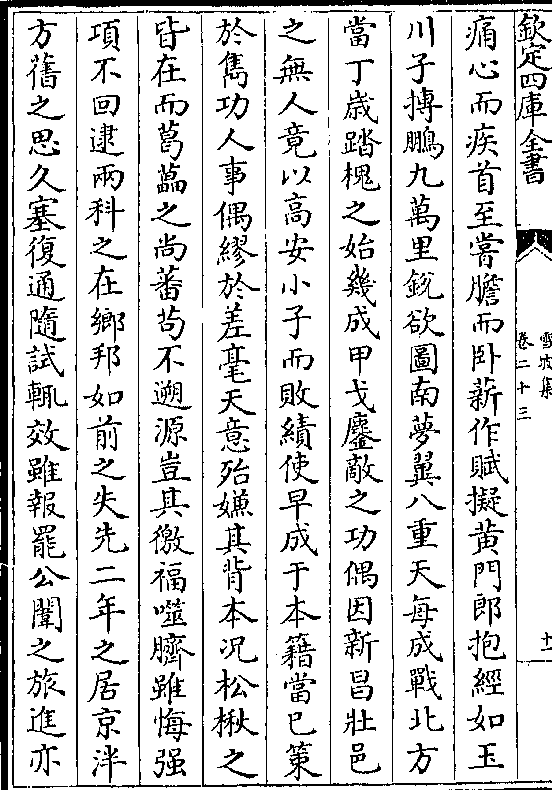 欽定四庫全書
雪坡集
卷二十三
十一
痛心而疾首至嘗膽而卧薪作賦擬黄門郎抱經如玉
川子摶鵬九萬里鋭欲圖南夢翼八重天每成戰北方
當丁歳踏槐之始幾成甲戈鏖敵之功偶因新昌壮邑
之無人竟以高安小子而敗績使早成于本籍當已策
於雋功人事偶繆於差毫天意殆嫌其背本况松楸之
皆在而葛藟之尚蕃苟不遡源豈其徼福噬臍雖悔强
項不回逮兩科之在鄉邦如前之失先二年之居京泮
方舊之思久塞復通隨試輒效雖報罷公闈之旅進亦